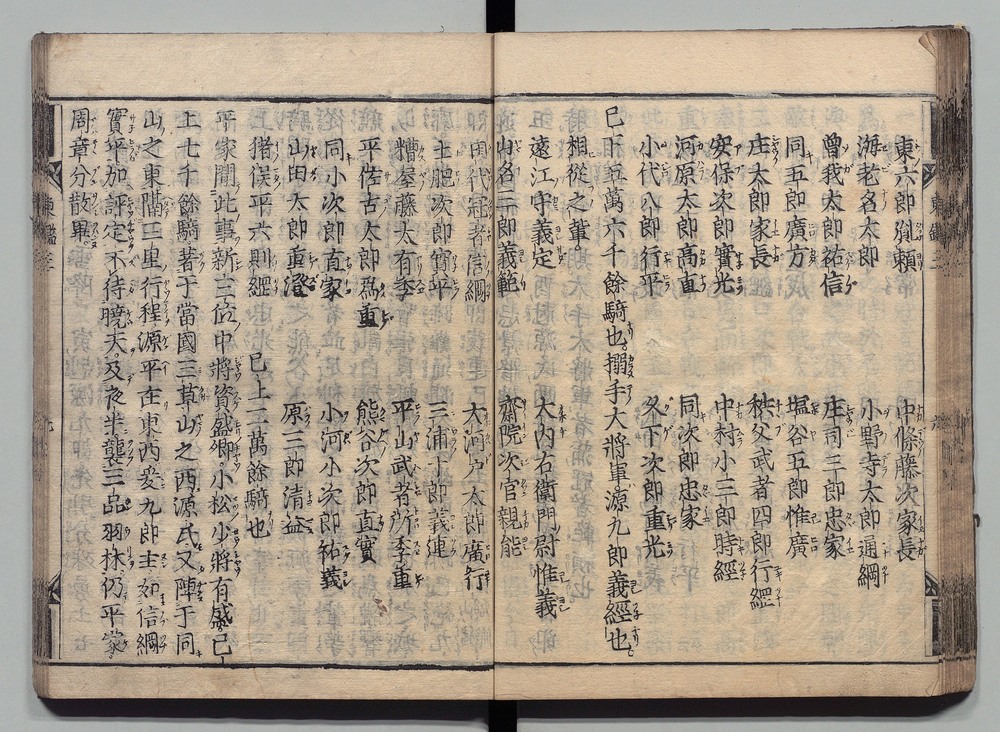 東六郎胤頼　中條藤次家長
海老名太郎　小野寺太郎通綱
曾我太郎祐信　庄司三郎忠家
同五郎廣方　塩谷五郎惟廣
庄太郎家長　秩父武者四郎行綱
安保次郎實光　中村小三郎時經
河原太郎高直　同次郎忠家
小代八郎行平　久下次郎重光
已下五萬六千餘騎也搦手大將軍源九郎義經也
相從之輩
遠江守義定　大内右衛門尉惟義
山名三郎義範　齋院次官親能
田代冠者信綱　大河戸太郎廣行
土肥次郎實平　三浦十郎義連
糟屋藤太有季　平山武者所季重
平佐古太郎爲重　熊谷次郎直實
同小次郎直家　小河小次郎祐義
山田太郎重澄　原三郎清益
猪俣平六則綱　已上二萬餘騎也
平家聞此事新三位中將資盛卿小松少將有盛已
上七千餘騎著于當國三草山之西源氏又陣于同
山之東隔三里行程源平在東西爰九郎主如信綱
實平加評定不待曉天及夜半襲三品羽林仍平家
周章分散畢
東鑑三